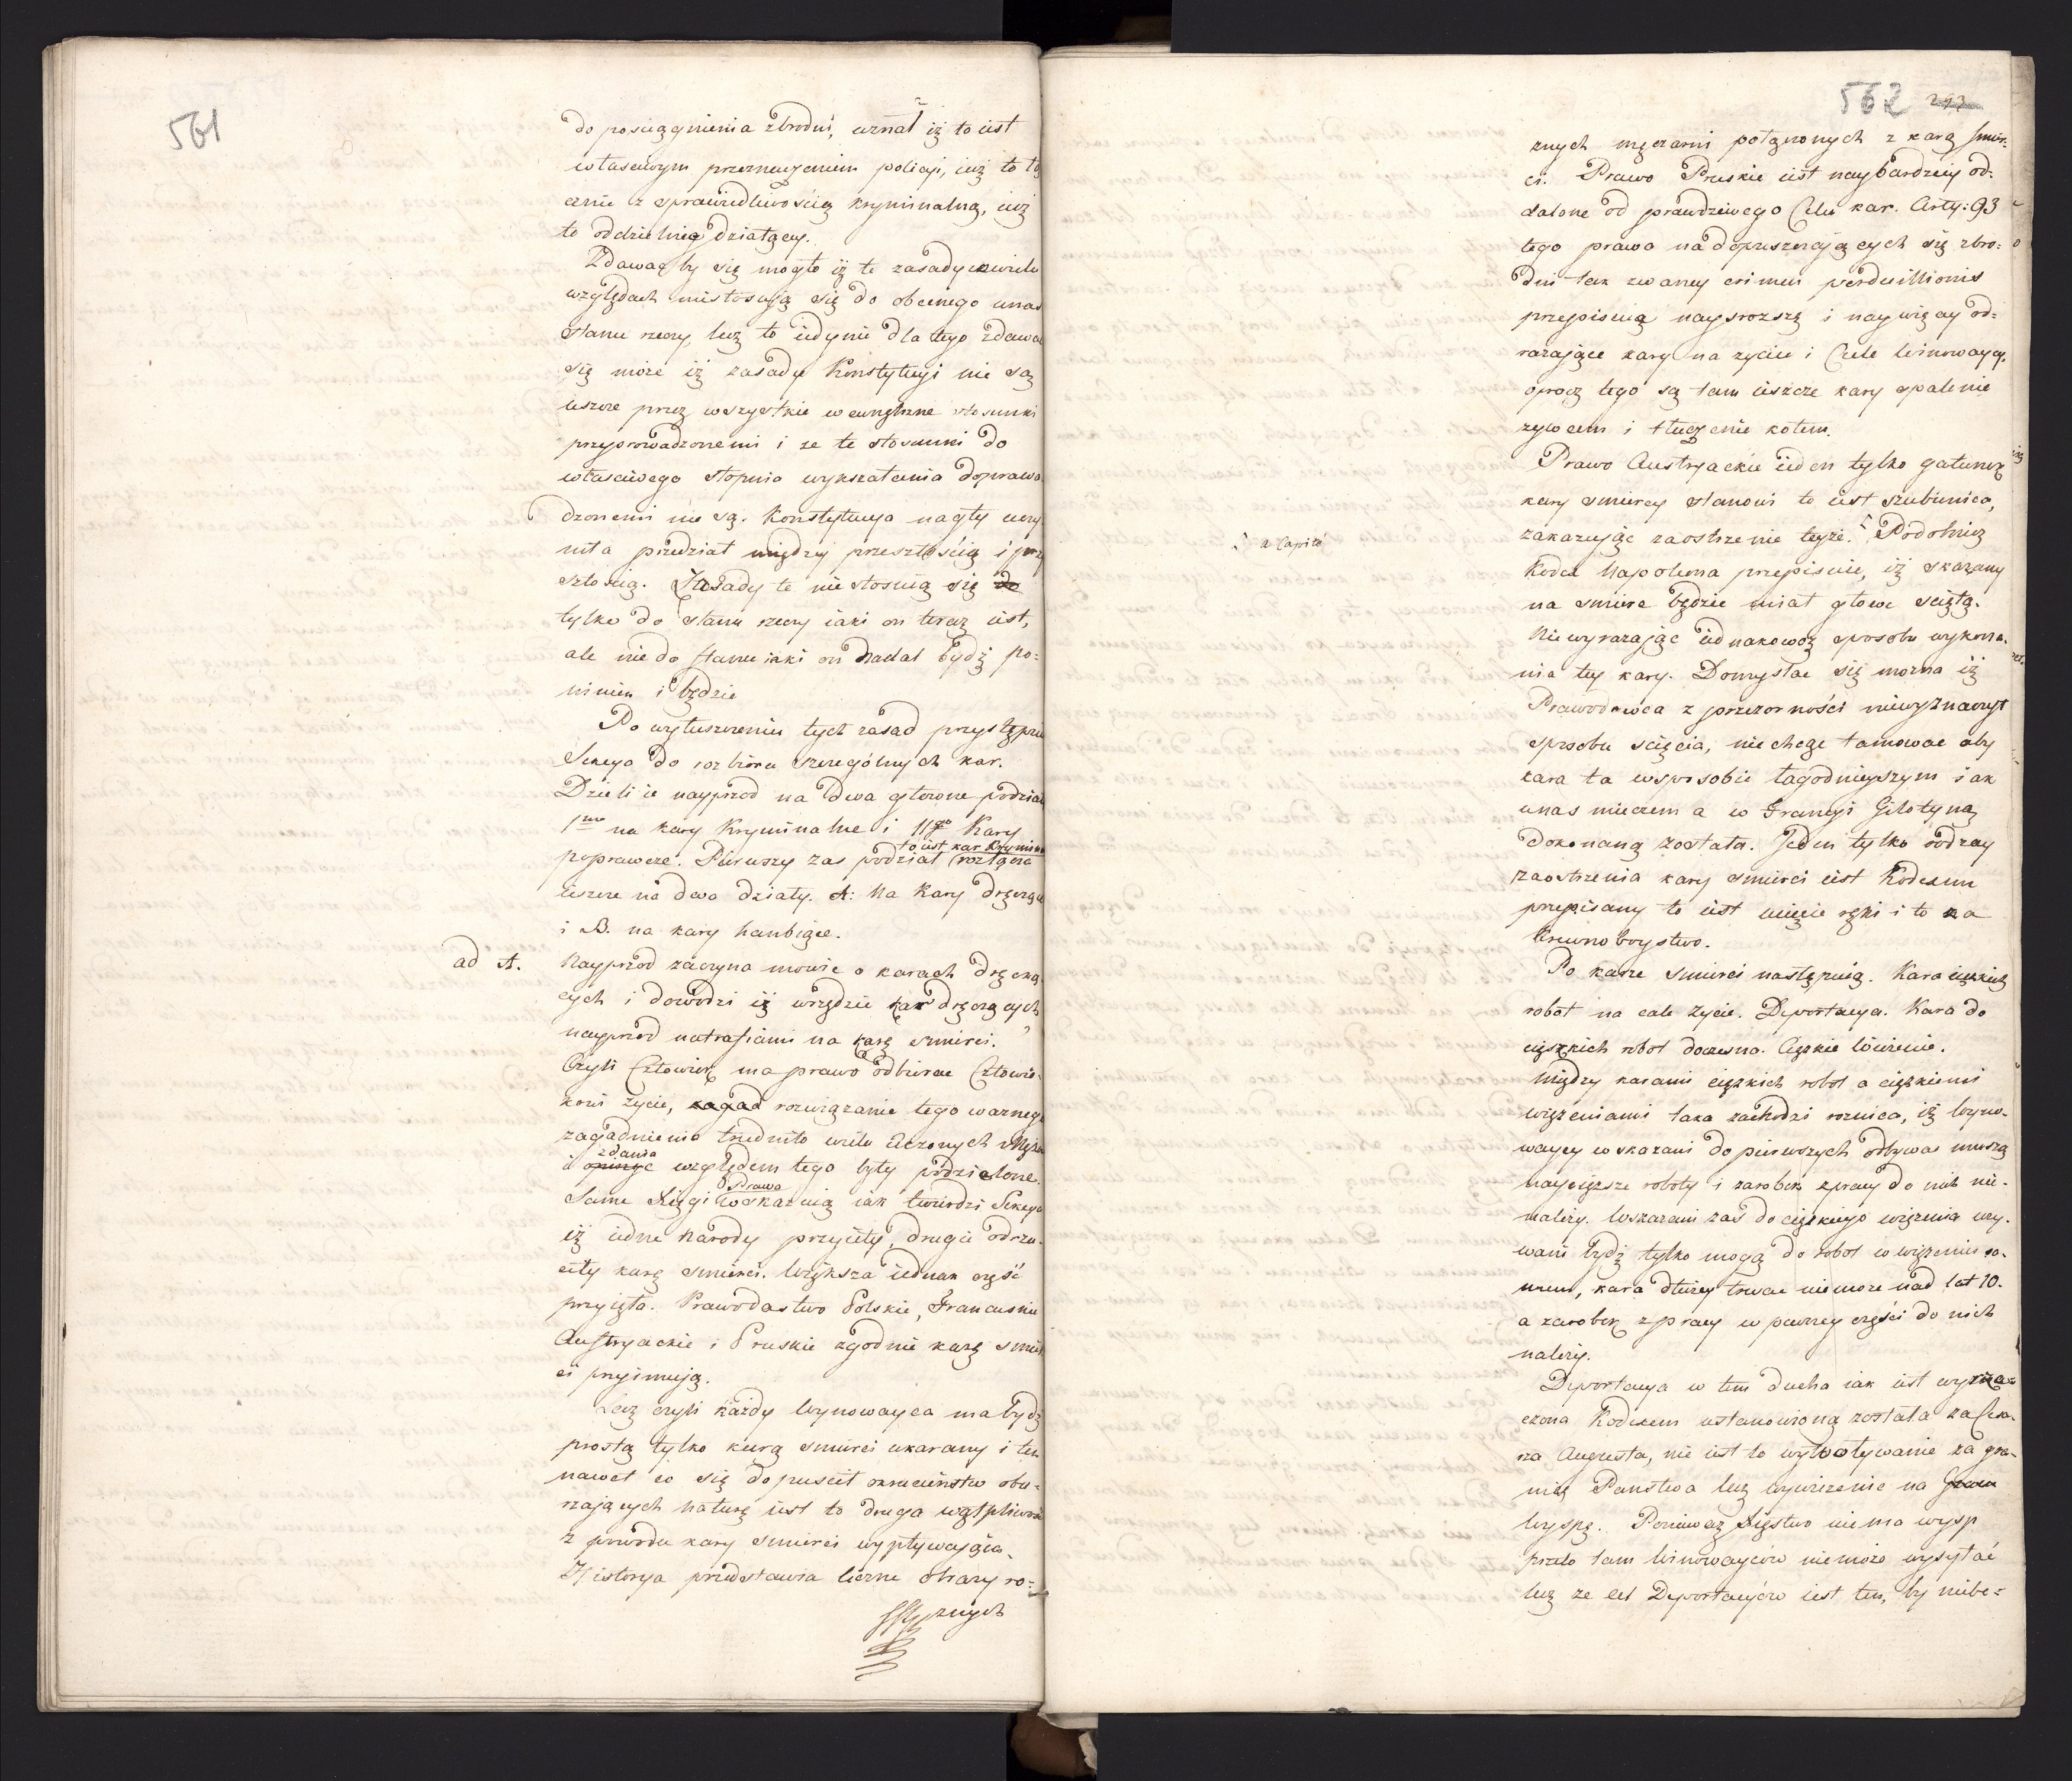 561
do posciągnienia zbrodni, uznał iż to iest
własciwym przeznaczeniem policyi, iuż to łą
cznie z sprawiedliwością kryminalną, iuż
to oddzielnie działącey.
Zdawać by się mogło iż te zasady w wielu
względach niestosuią się do obecnego unas
stanu rzeczy, lecz to iedynie dla tego zdawa
się może iż zasady Konstytucyi nie są
ieszcze przez wszystkie wewnętrzne stosunki
przyprowadzonemi i ze te stosunki do
własciwego stopnia wykształcenia doprawa
dzonemi nie są. Konstytucya nagły uczy
niła przedział między przeszłością i prz
szłością. Zasady te nie stosuią się do
tylko do stanu rzeczy iaki on teraz iest,
ale nie do stanu iaki on nadal bydź po=
winien i będzie
Po wytuszczeniu tych zasad przystępuie
Sekcya do rozbioru szczególnych kar.
Dzieli ie nayprzod na dwa głowne podział
1mo na kary Kryminalne i IIgo Kary
to iest kar Krymin
poprawcze. Pierwszy zas podział rozłącza
ieszcze na dwa działy. A: Na Kary dręczące
i B. na kary hanbiące.
ad A. Nayprzod zaczyna mowić o karach dręczą
cych i dowodzi iż wrzędzie kar dręczących
nayprzod natrafiami na karę smierci.
Czyli Człowiek ma prawo odbierac Człowie=
kowi życie, zagad rozwiązanie tego waznego
zagadnienia trudniło wielu Uczonych Mężow
zdania
i opinye względem tego były podzielone.
Prawa
Same Xięgi wskazuią iak twierdzi Sekcya
iż iedne Narody przyieły, drugie odrzu=
ciły karę smierci. Większa iednak część
przyięła. Prawodastwo Polskie, Francuskie
Austryackie i Pruskie zgodnie karę smier
ci przyimują.
Lecz czyli każdy Wynowayca ma bydź
prostą tylko karą smierci ukarany i ten
nawet co się dopuscił okrucieństw obu=
rzaiących naturę iest to druga wątpliwość
z powodu kary smierci wypływaiąca.
Historya przedstawia liczne obrazy ro=
znych
562 293
znych męczarni połączonych z karą smier=
ci. Prawo Pruskie iest naybardziey od=
dalone od prawdziwego Celu kar. Arty: 93
tego prawa na dopuszczaiących się zbro=
dni tak zwaney crimen perduillionis
przepisuią naysrozszą i naywięcy od=
razaiące kary na zyciu i Ciele Winowaycy.
oprocz tego są tam ieszcze kary spalenie
zywcem i tłuczenie kołem.
Prawo Austryackie ieden tylko gatunek
kary smiercy stanowi to iest szubienica,
zakazuiąc zaostrzenie teyże. Podobniez
a Capite
Kodex Napoleona przepisuie, iż skazany
na smierc będzie miał głowe sciętą.
Niewyrazaiąc iednakowoż sposobu wykona=
nia tey kary. Domyslac się mozna iż
Prawodawca z przezorności niewyznaczył
sposobu scięcia, niechcąc tamowac aby
kara ta wsposobie łagodnieyszym iak
unas mieczem a w Francyi Gilotyną
dokonaną została. Jeden tylko rodzay
zaostrzenia kary smierci iest Kodexem
przepisany to iest ucięcie ręki i to za
krewnoboystwo.
Po karze smierci następuią. Kara ciężkich
robot na całe życie. Deportacya. Kara do
ciężkich robot doczesna. Ciężkie Więzienie.
Między karami ciężkich robot a ciężkiemi
więzieniami taka zachodzi roznica, iż Wyno-
waycy wskazani do pierwszych odbywac muszą
naycięższe roboty i zarobek z pracy do nich nie-
należy. Wskazani zas do ciężkiego więzienia uży-
wani bydź tylko mogą do robot w więzieniu sa-
mem, kara dłużey trwac niemoze nad lat 10.
a zarobek z pracy w pewney części do nich
należy.
Deportacya w tem duchu iak iest wyrze=
czona Kodexem ustanowioną została za Cesa-
rza Augusta, nie iest to wywoływanie za gra-
nicę Panstwa lecz wywiezienie na
Wyspę. Ponieważ Xięstwo niema wysp
przeto tam Winowayców niemoże wysyłać
lecz ze cel Deportacyów iest ten, by niebe=